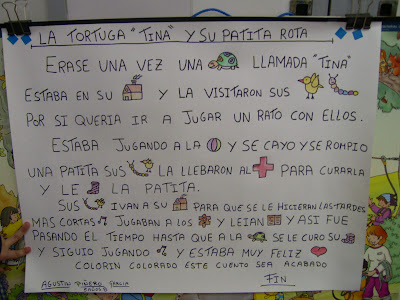 LA TORTUGA "TINA" Y SU PATITA ROTA
ERASE UNA VEZ UNA LLAMADA "TINA"
ESTABA EN SU Y LA VISITARON SUS
POR SI QUERIA IR A JUGAR UN RATO CON ELLOS.
ESTABA JUGANDO A LA Y SE CAYO Y SE ROMPIO
UNA PATITA SUS LA LLEBARON AL PARA CURARLA
Y LE LA PATITA.
SUS IVAN A SU PARA QUE SE LE HICIERAN LAS TARDES
MAS CORTAS JUGABAN A LOS Y LEIAN Y ASI FUE
PASANDO EL TIEMPO HASTA QUE A LA SE LE CURO SU
Y SIGUIO JUGANDO Y ESTABA MUY FELIZ
COLORIN COLORADO ESTE CUENTO SEA ACABADO
AGUSTIN PIÑERO GARCIA
FIN